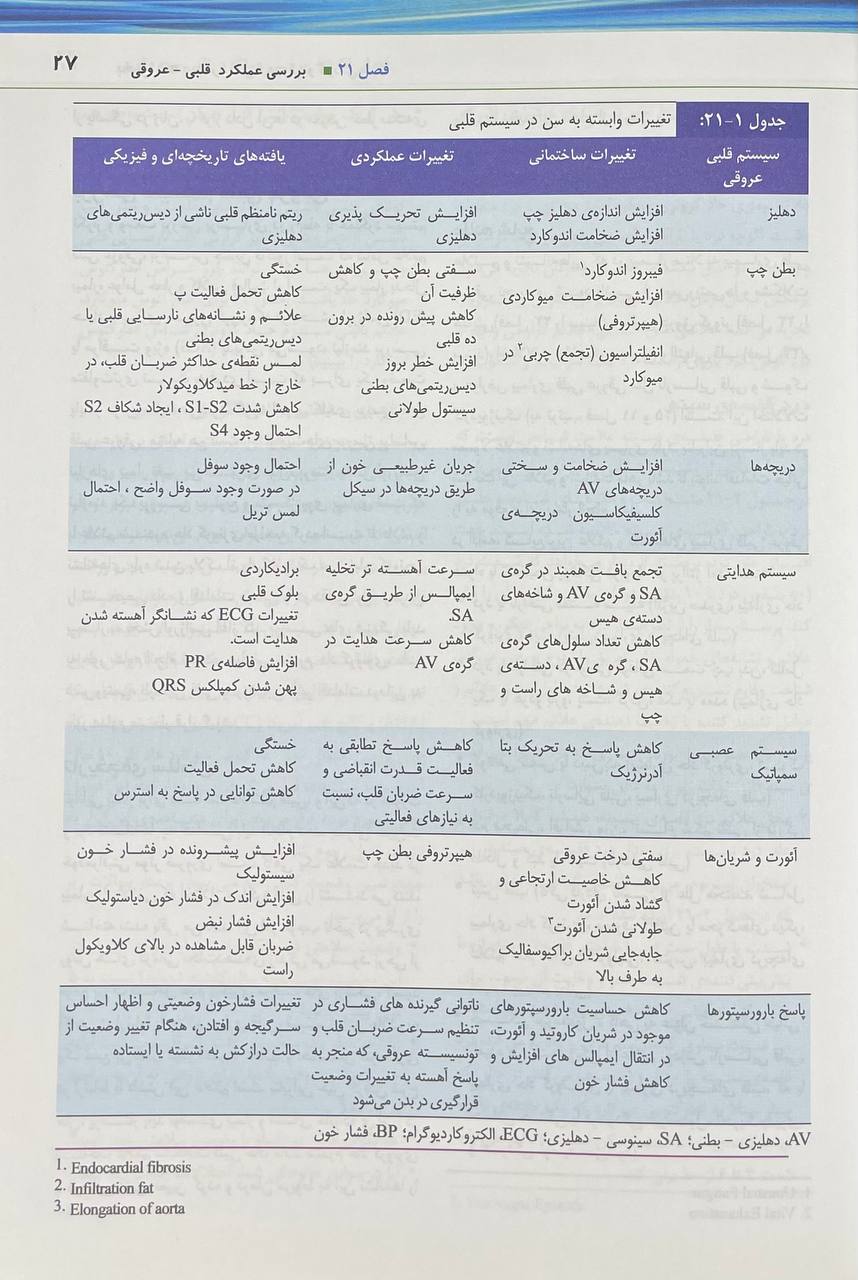 فصل ۲۱ ■ بررسی عملکرد قلبی - عروقی
۲۷
جدول ۱-۲۱: تغییرات وابسته به سن در سیستم قلبی
سیستم قلبی
عروقی
تغییرات ساختمانی
تغییرات عملکردی
یافته‌های تاریخچه‌ای و فیزیکی
دهلیز
افزایش اندازه‌ی دهلیز چپ
افزایش ضخامت اندوکارد
افزایش تحریک پذیری
دهلیزی
ریتم نامنظم قلبی ناشی از دیس‌ریتمی‌های
دهلیزی
بطن چپ
فیبروز اندوکارد۱
افزایش ضخامت میوکاردی
(هیپرتروفی)
انفیلتراسیون (تجمع) چربی۲ در
میوکارد
سفتی بطن چپ و کاهش
ظرفیت آن
کاهش پیش رونده در برون
ده قلبی
افزایش خطر بروز
دیس‌ریتمی‌های بطنی
سیستول طولانی
خستگی
کاهش تحمل فعالیت پ
علائم و نشانه‌های نارسایی قلبی یا
دیس‌ریتمی‌های بطنی
لمس نقطه‌ی حداکثر ضربان قلب، در
خارج از خط میدکلاویکولار
کاهش شدت S1-S2 ، ایجاد شکاف S2
احتمال وجود S4
دریچه‌ها
افزایش ضخامت و سختی
دریچه‌های AV
کلسیفیکاسیون دریچه‌ی
آئورت
جریان غیرطبیعی خون از
طریق دریچه‌ها در سیکل
احتمال وجود سوفل
در صورت وجود سوفل واضح ، احتمال
لمس تریل
سیستم هدایتی
تجمع بافت همبند در گره‌ی
SA و گره‌ی AV و شاخه‌های
دسته‌ی هیس
کاهش تعداد سلول‌های گره‌ی
SA ، گره ی AV ، دسته‌ی
هیس و شاخه های راست و
چپ
سرعت آهسته تر تخلیه
ایمپالس از طریق گره‌ی
SA.
کاهش سرعت هدایت در
گره‌ی AV
برادیکاردی
بلوک قلبی
تغییرات ECG که نشانگر آهسته شدن
هدایت است.
افزایش فاصله‌ی PR
پهن شدن کمپلکس QRS
سیستم عصبی
سمپاتیک
کاهش پاسخ به تحریک بتا
آدرنرژیک
کاهش پاسخ تطابقی به
فعالیت قدرت انقباضی و
سرعت ضربان قلب، نسبت
به نیازهای فعالیتی
خستگی
کاهش تحمل فعالیت
کاهش توانایی در پاسخ به استرس
آئورت و شریان‌ها
سفتی درخت عروقی
کاهش خاصیت ارتجاعی و
گشاد شدن آئورت
طولانی شدن آئورت۳
جابه‌جایی شریان براکیوسفالیک
به طرف بالا
هیپرتروفی بطن چپ
افزایش پیشرونده در فشار خون
سیستولیک
افزایش اندک در فشار خون دیاستولیک
افزایش فشار نبض
ضربان قابل مشاهده در بالای کلاویکول
راست
پاسخ بارورسپتورها
کاهش حساسیت بارورسپتورهای
موجود در شریان کاروتید و آئورت،
در انتقال ایمپالس های افزایش و
کاهش فشار خون
ناتوانی گیرنده های فشاری در
تنظیم سرعت ضربان قلب و
تونیسیته عروقی، که منجر به
پاسخ آهسته به تغییرات وضعیت
قرارگیری در بدن می‌شود
تغییرات فشارخون وضعیتی و اظهار احساس
سرگیجه و افتادن، هنگام تغییر وضعیت از
حالت درازکش به نشسته یا ایستاده
AV، دهلیزی - بطنی؛ SA، سینوسی - دهلیزی؛ ECG، الکتروکاردیوگرام؛ BP، فشار خون
1. Endocardial fibrosis
2. Infiltration fat
3. Elongation of aorta